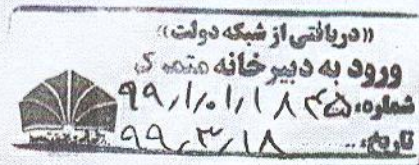 ((دریافتی از شبکه دولت))
ورود به دبیرخانه متمرکز
شماره: ۹۹/۱/۰۱/۱۸۴۵
تاریخ: ۹۹/۳/۱۸